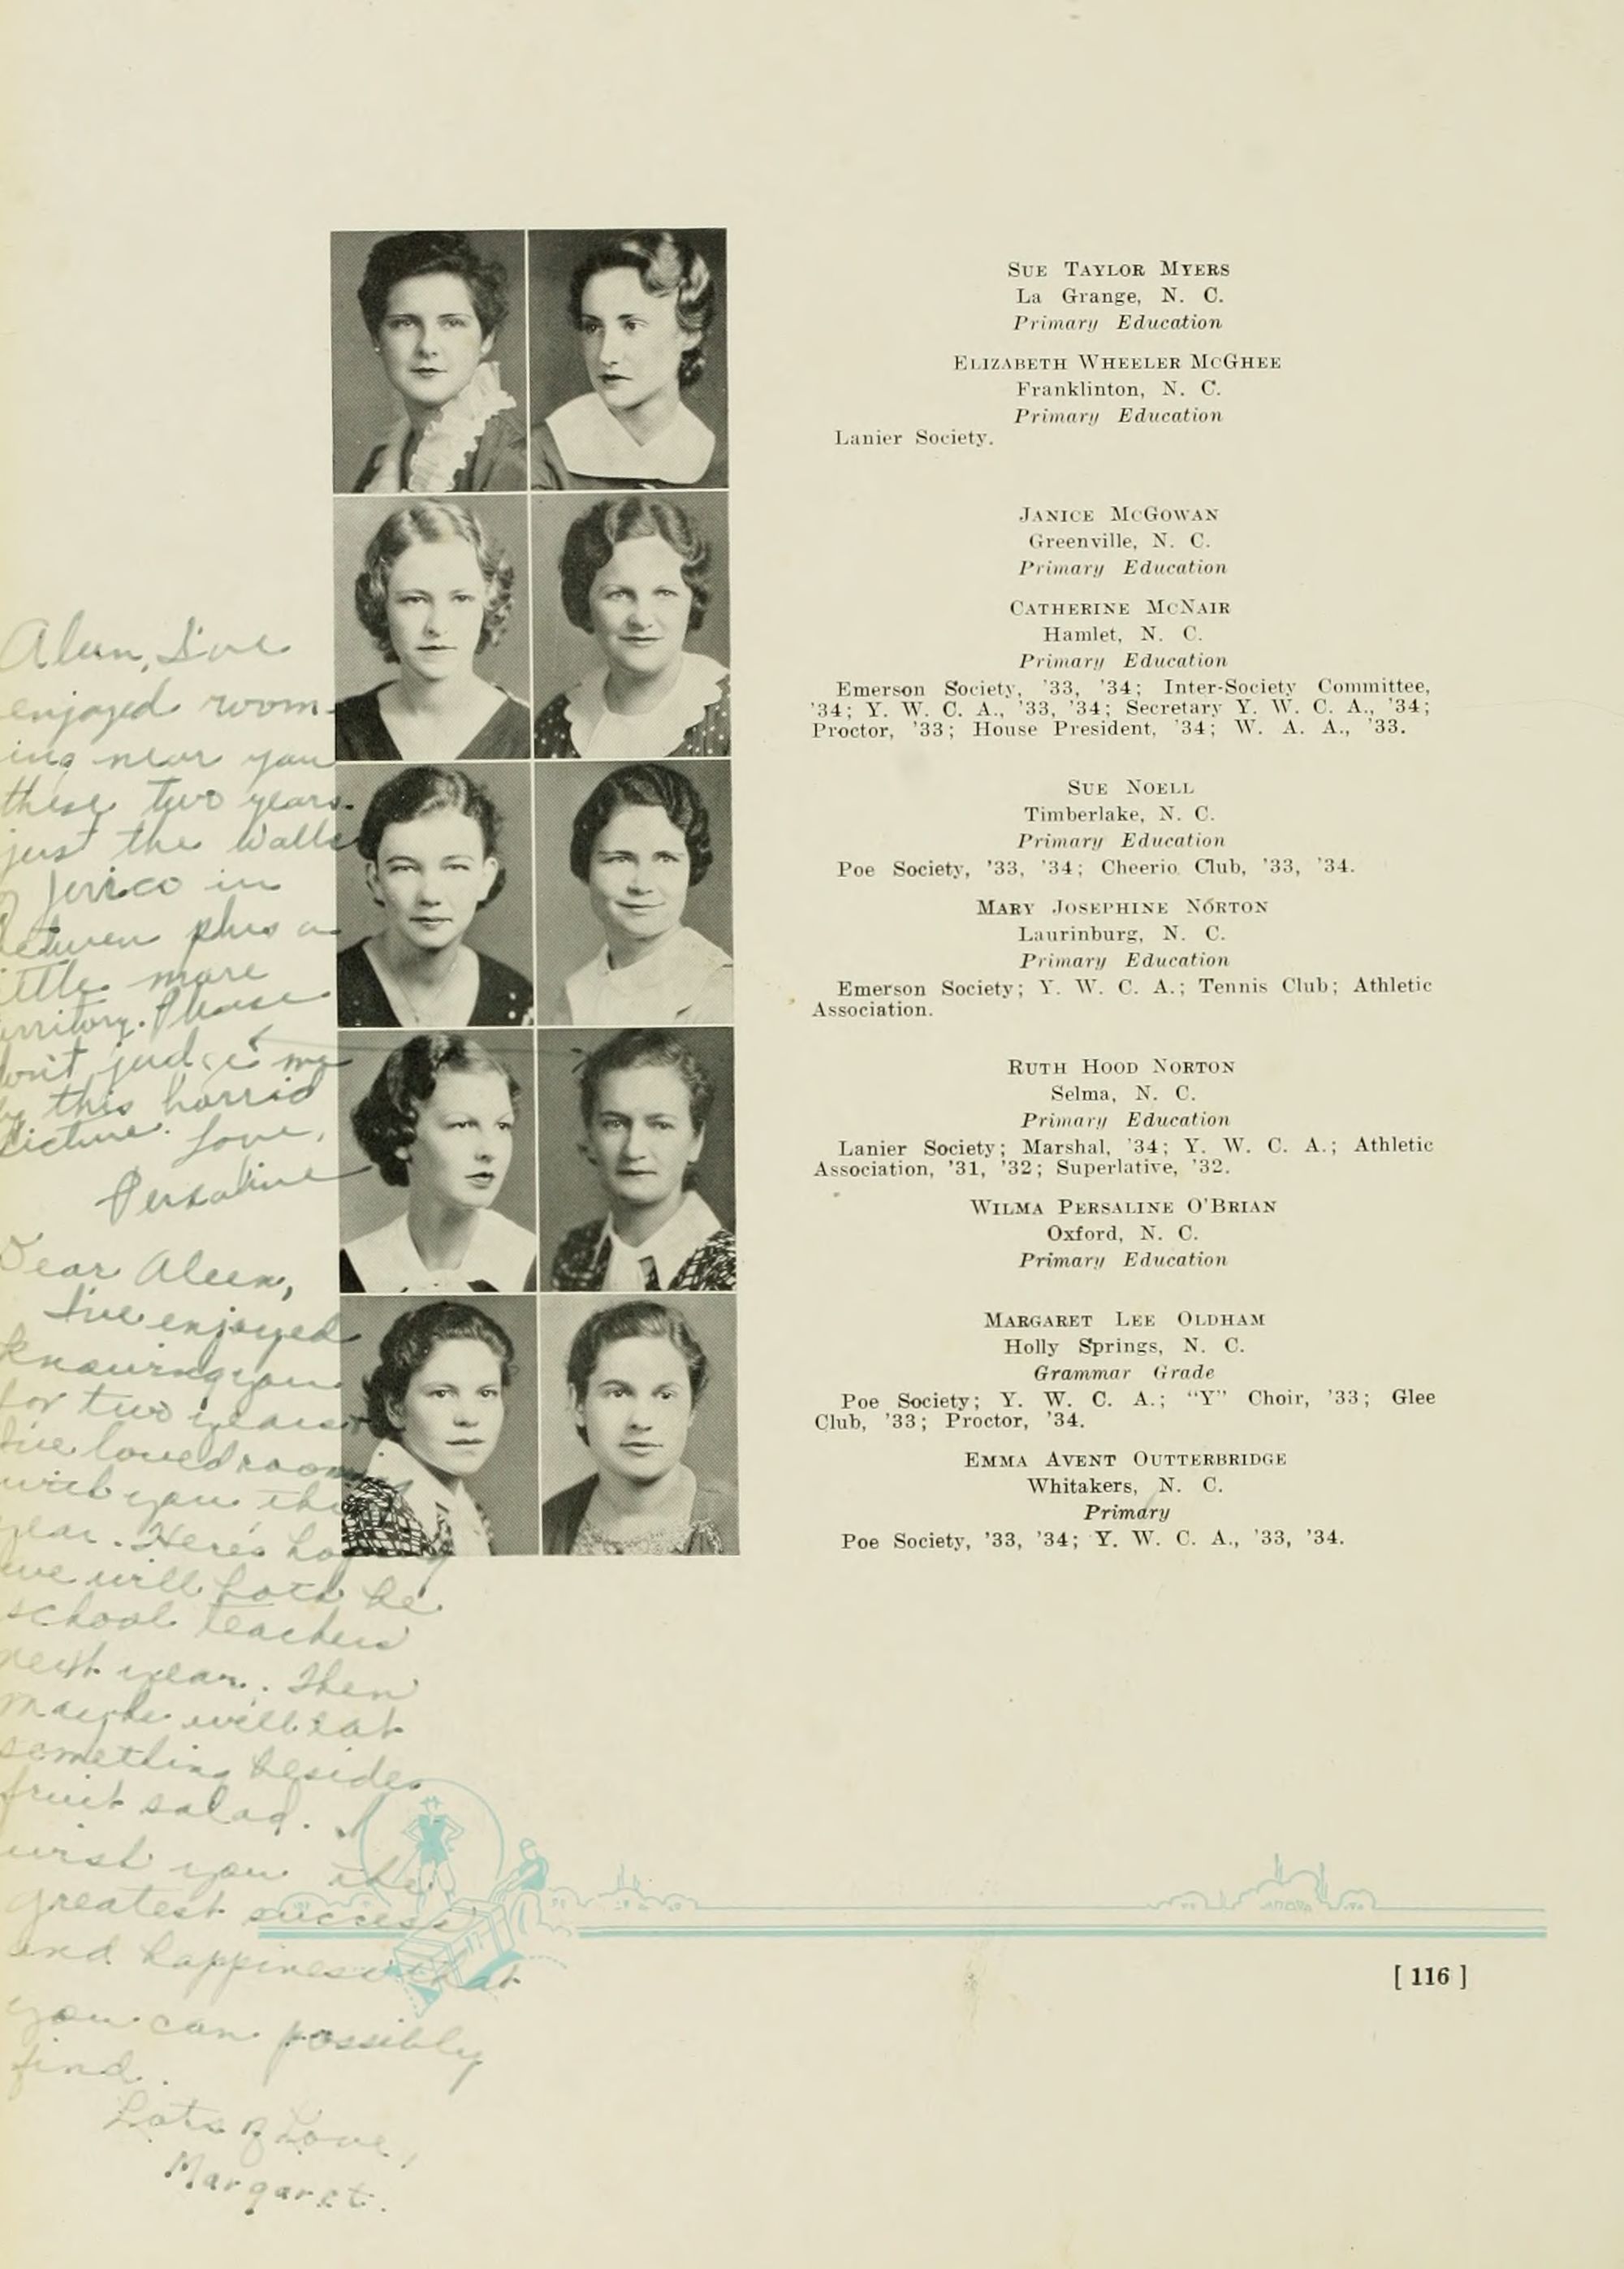 SUE TAYLOR MYERS
La Grange, N. C.
Primary Education
ELIZABETH WHEELER McGHEE
Franklinton, N. C.
Primary Education
Lanier Society.
JANICE McGOWAN
Greenville, N. C.
Primary Education
CATHERINE McNAIR
Hamlet, N. C.
Primary Education
Emerson Society, '33, '34; Inter-Society Committee,
'34; Y. W. C. A., '33, '34; Secretary Y. W. C. A., '34;
Proctor, '33; House President, '34; W. A. A., '33.
SUE NOELL
Timberlake, N. C.
Primary Education
Poe Society, '33, '34; Cheerio Club, '33, '34.
MARY JOSEPHINE NORTON
Laurinburg, N. C.
Primary Education
Emerson Society; Y. W. C. A.; Tennis Club; Athletic
Association.
RUTH HOOD NORTON
Selma, N. C.
Primary Education
Lanier Society; Marshal, '34; Y. W. C. A.; Athletic
Association, '31, '32; Superlative, '32.
WILMA PERSALINE O'BRIAN
Oxford, N. C.
Primary Education
MARGARET LEE OLDHAM
Holly Springs, N. C.
Grammar Grade
Poe Society; Y. W. C. A.; "Y" Choir, '33; Glee
Club, '33; Proctor, '34.
EMMA AVENT OUTTERBRIDGE
Whitakers, N. C.
Primary
Poe Society, '33, '34; Y. W. C. A., '33, '34.
Aleen, I've
enjoyed room-
ing near you
these two years.
just the Walls
Jerico in
between plus a
little more
territory. Please
don't judge me
by this horrid
picture. Love,
Persaline
Dear Aleen,
I've enjoyed
knowing you
for two years +
I've loved rooming
with you this
year. Here's hoping
we will both be
school teachers
next year. Then
maybe we'll eat
something besides
fruit salad. I
wish you the
greatest success
and happiness that
you can possibly
find.
Lots of Love,
Margaret.
[ 116 ]